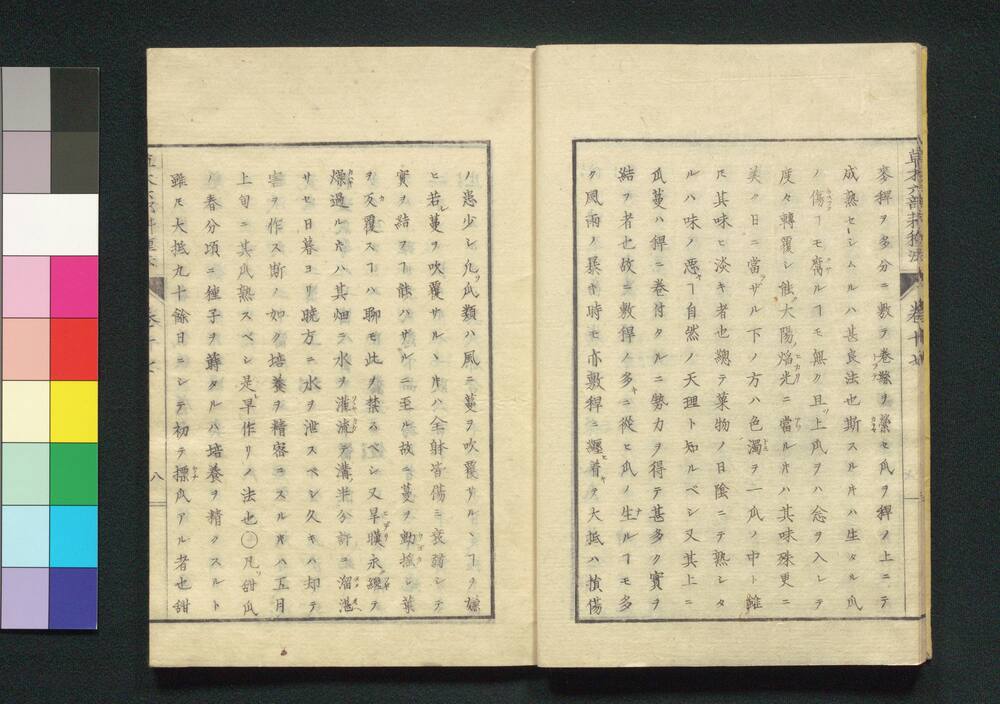 草木六部耕種法 卷十七
麥稈ヲ多分ニ敷テ卷鬚ヲ縈セ瓜ヲ稈ノ上ニテ
成熟セーシムルハ甚良法也斯スル片ハ生タル瓜
ノ傷ヿモ腐ルヿモ無ク且上瓜ヲハ念ヲ入レテ
度々轉覆シ能大陽焰光ニ當ル片ハ其味殊更ニ
美ク日ニ當ザル下ノ方ハ色濁ヲ一瓜ノ中ト雖
㞮其味ヒ淡キ者也總テ菓物ノ日陰ニテ熟シタ
ルハ味ノ悪ヿ自然ノ天理ト知ルベシ又其上ニ
瓜蔓ハ稈ニ卷付タルニ勢力ヲ得テ甚多ク實ヲ
結フ者也故ニ敷稈ノ多ニ從ヒ瓜ノ生ルヿモ多
ク風雨ノ暴キ時モ亦敷稈ニ纒着テ大抵ハ損傷
ノ患少シ凡瓜類ハ風ニ蔓ヲ吹覆サルヽヿヲ嫌
ヒ若蔓ヲ吹覆サルヽ片ハ全躰皆傷ミ衰弱シテ
實ヲ結フヿ能ハザルニ至ル故ニ蔓ヲ動搖シ葉
ヲ反覆スヿハ聊モ此ヲ禁ズベシ又旱暵永續テ
燥過ル片ハ其畑ニ水ヲ灌流テ溝半分許ニ溜湛
サセ日暮ヨリ曉方ニ水ヲ泄スベシ久キハ却テ
害ヲ作ス斯ノ如ク培養ヲ精密ニスル片ハ五月
上旬ニ其瓜熟スベシ是早作リノ法也〇凡甜瓜
ハ春分頃ニ種子ヲ蒔タルハ培養ヲ精クスルト
雖㞮大抵九十餘日ニシテ初テ摽瓜アル者也甜
八